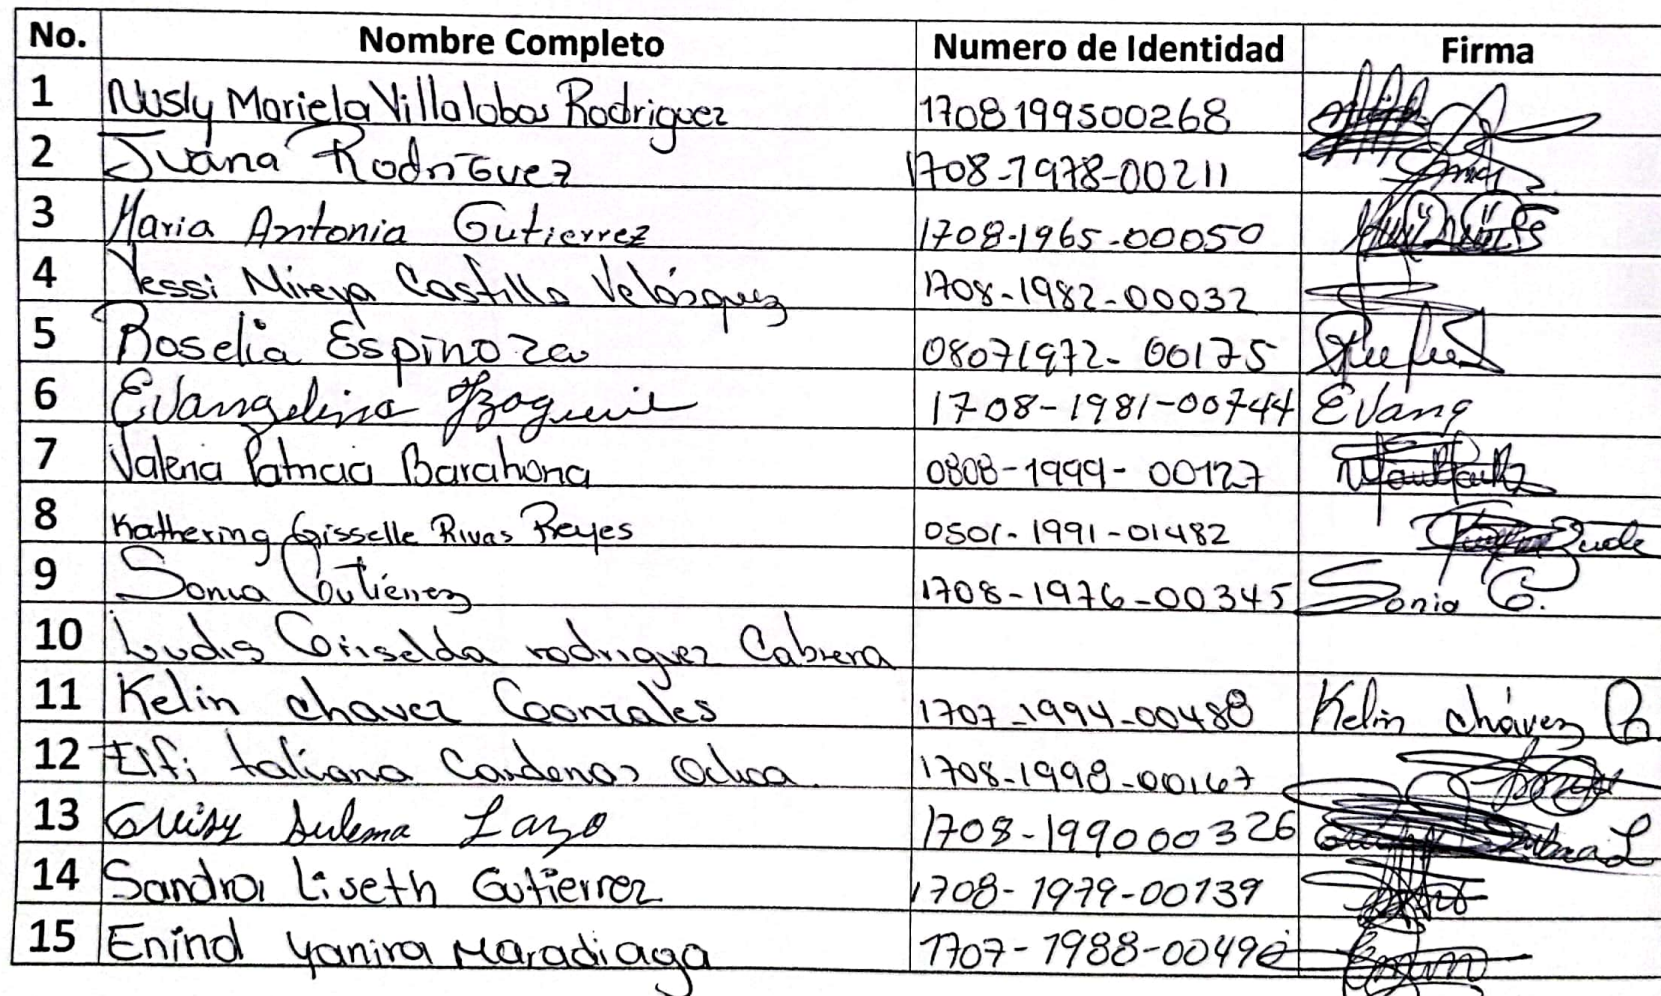 No. Nombre Completo Numero de Identidad Firma
1 Nusly Mariela Villalobos Rodriguez 1708199500268
2 Juana Rodriguez 1708-1978-00211
3 Maria Antonia Gutierrez 1708-1965-00050
4 Yessi Mireya Castillo Velásquez 1708-1982-00032
5 Roselia Espinoza 08071972-00175
6 Evangelina 1708-1981-00744 Evang
7 Valeria Patricia Barahona 0808-1999-00127
8 Kathering Gisselle Rivas Reyes 0501-1991-01482
9 Sonia Gutiérrez 1708-1976-00345 Sonia G.
10 Ludis Griselda rodriguez Cabrera
11 Kelin chavez Gonzales 1707-1994-00480 Kelin chávez G.
12 Elfi taliana Cardenas Ochoa 1708-1998-00167
13 Sulema Lazo 1708-199000326
14 Sandra Liseth Gutierrez 1708-1979-00139
15 Enind yanira Maradiaga 1707-1988-00490